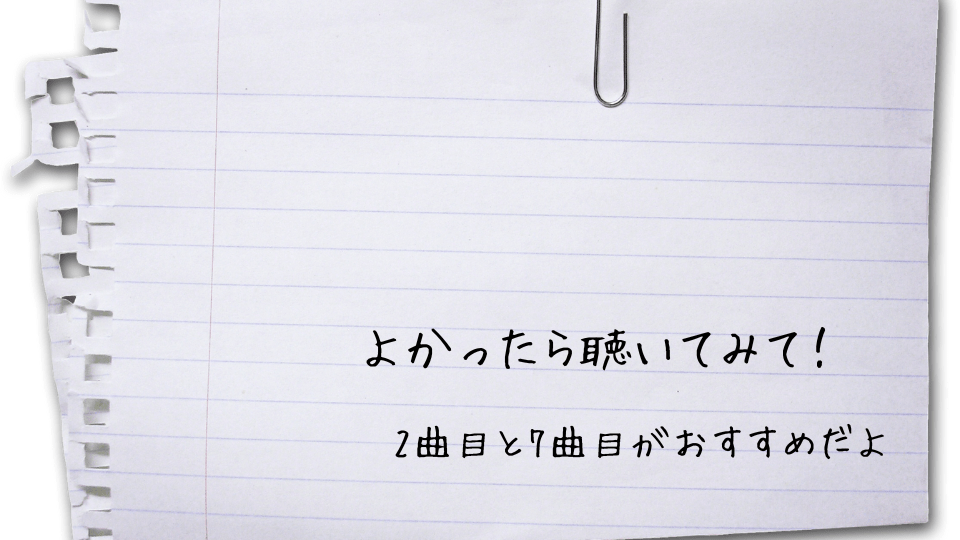 よかったら聴いてみて!
2曲目と7曲目がおすすめだよ